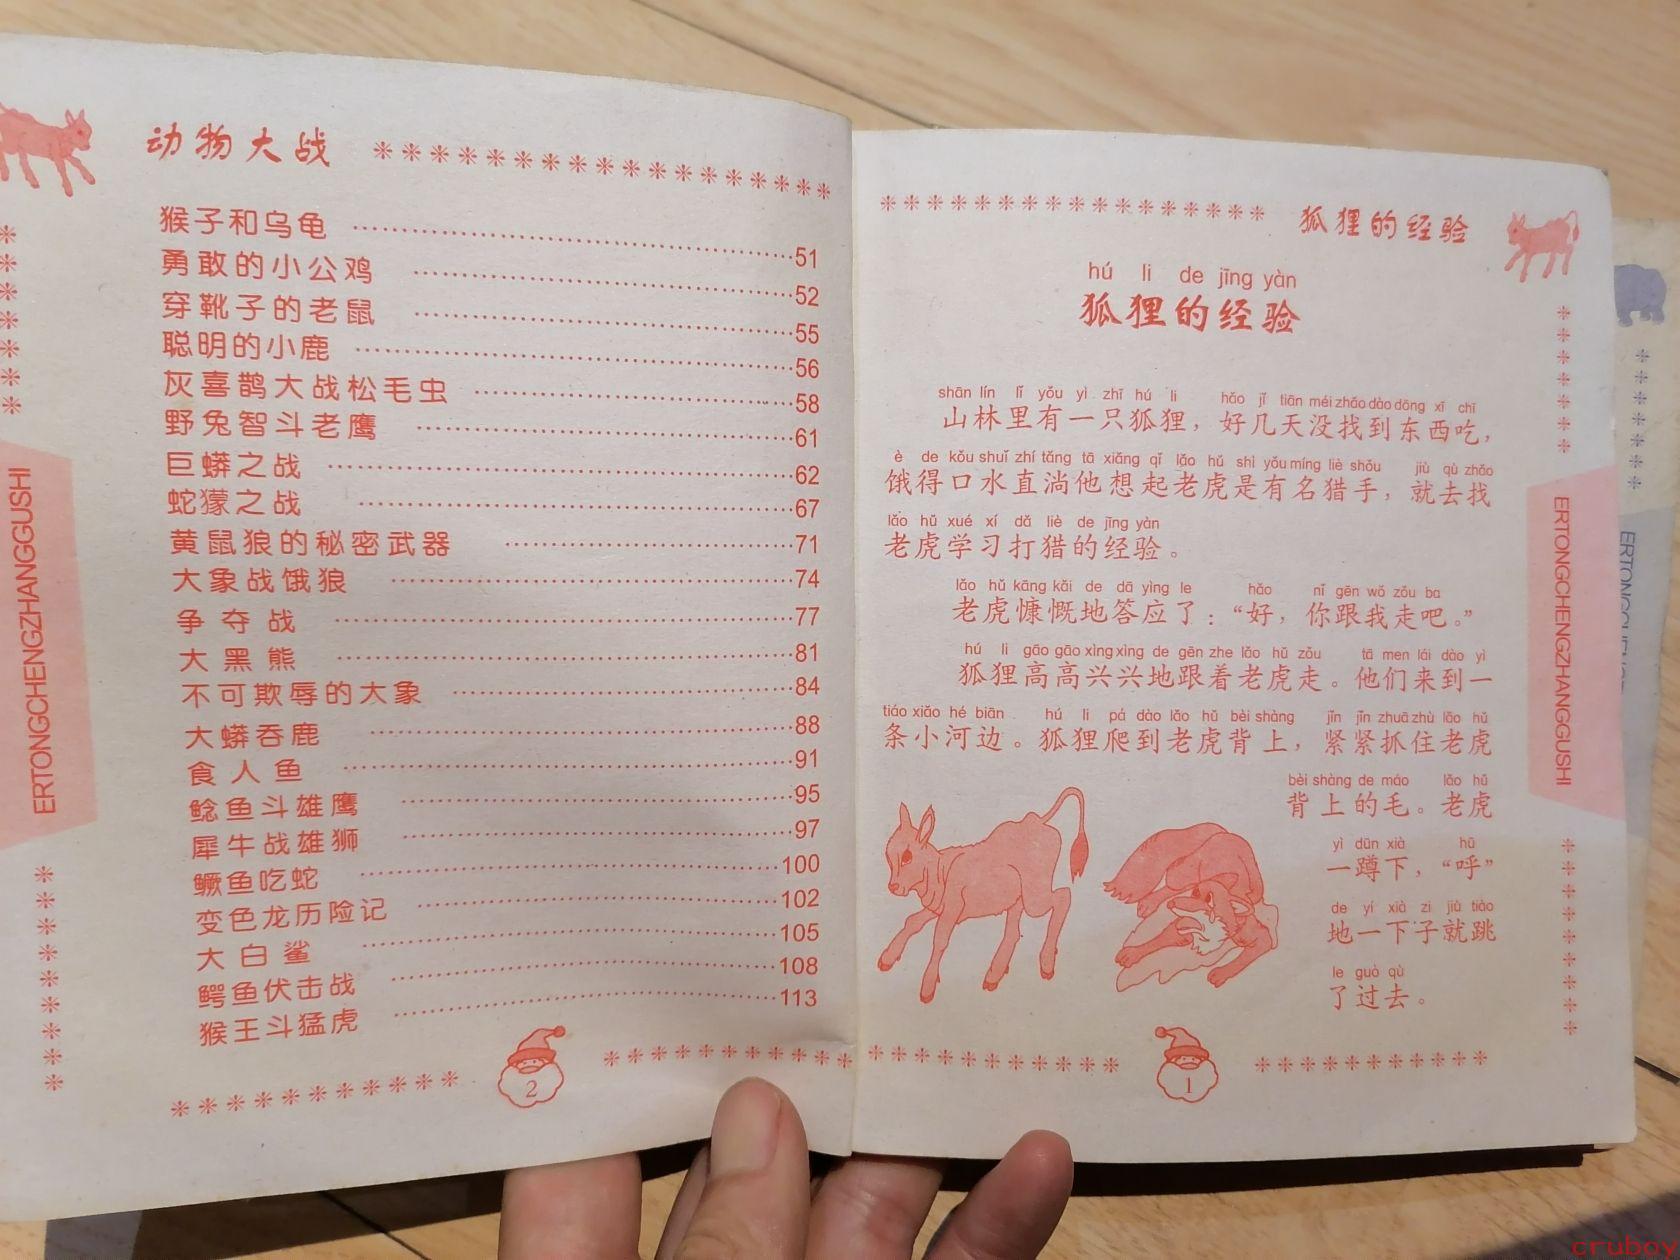 动物大战
猴子和乌龟 51
勇敢的小公鸡 52
穿靴子的老鼠 55
聪明的小鹿 56
灰喜鹊大战松毛虫 58
野兔智斗老鹰 61
巨蟒之战 62
蛇獴之战 67
黄鼠狼的秘密武器 71
大象战饿狼 74
争夺战 77
大黑熊 81
不可欺辱的大象 84
大蟒吞鹿 88
食人鱼 91
鲶鱼斗雄鹰 95
犀牛战雄狮 97
鳜鱼吃蛇 100
变色龙历险记 102
大白鲨 105
鳄鱼伏击战 108
猴王斗猛虎 113
2
ERTONGCHENGZHANGGUSHI
狐狸的经验
hú li de jīng yàn
狐狸的经验
shān lín lǐ yǒu yì zhī hú li hǎo jǐ tiān méi zhǎo dào dōng xī chī
山林里有一只狐狸，好几天没找到东西吃，
è de kǒu shuǐ zhí tǎng tā xiǎng qǐ lǎo hǔ shì yǒu míng liè shǒu jiù qù zhǎo
饿得口水直淌他想起老虎是有名猎手，就去找
lǎo hǔ xué xí dǎ liè de jīng yàn
老虎学习打猎的经验。
lǎo hǔ kāng kǎi de dā yìng le hǎo nǐ gēn wǒ zǒu ba
老虎慷慨地答应了：“好，你跟我走吧。”
hú li gāo gāo xìng xìng de gēn zhe lǎo hǔ zǒu tā men lái dào yì
狐狸高高兴兴地跟着老虎走。他们来到一
tiáo xiǎo hé biān hú li pá dào lǎo hǔ bèi shàng jǐn jǐn zhuā zhù lǎo hǔ
条小河边。狐狸爬到老虎背上，紧紧抓住老虎
bèi shàng de máo lǎo hǔ
背上的毛。老虎
yì dūn xià hū
一蹲下，“呼”
de yí xià zi jiù tiào
地一下子就跳
le guò qù
了过去。
1
ERTONGCHENGZHANGGUSHI
cruboy